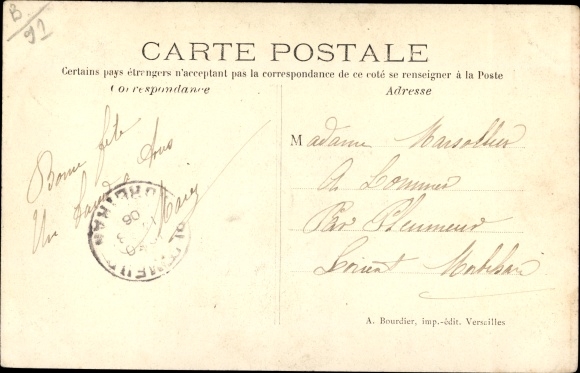 B/91
CARTE POSTALE
Certains pays étrangers n'acceptant pas la correspondance de ce coté se renseigner à la Poste
Correspondance
Adresse
Bonne fête
Un à tous
Marie
Madame Marsollier
A Lommer
Par Plemeur
Lorient Morbihan
MORBIHAN
06
A. Bourdier, imp.-édit. Versailles